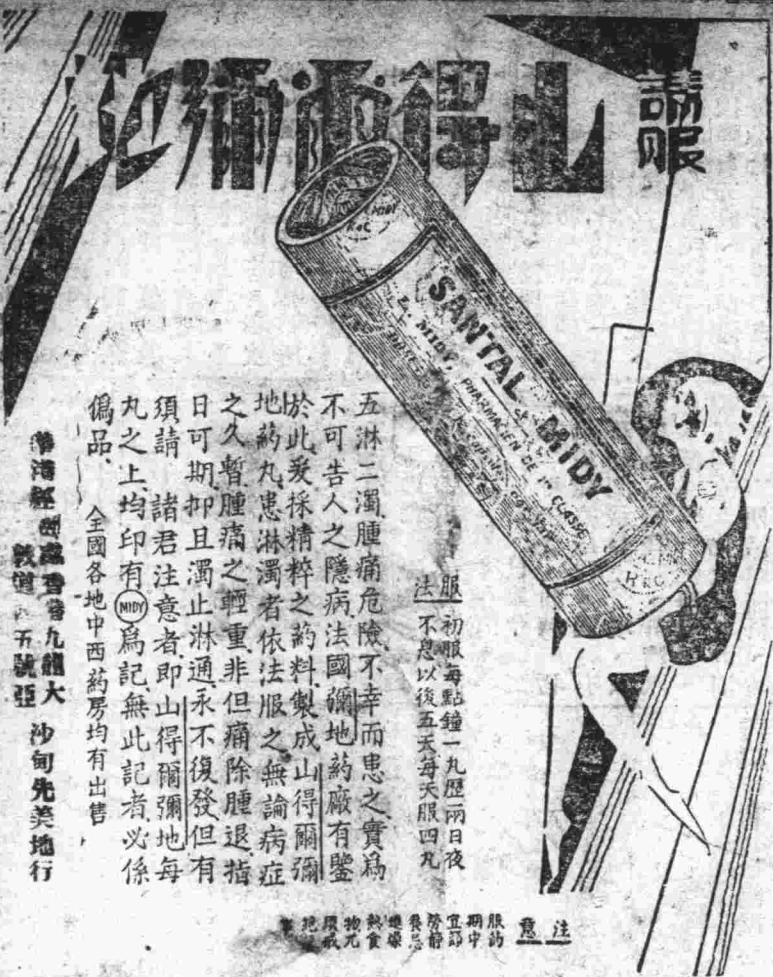 請服
山得爾彌地
SANTAL MIDY
L. MIDY, PHARMACIEN DE 1re CLASSE
服法
初服每點鐘一丸歷兩日夜
不息以後五天每天服四丸
五淋二濁腫痛危險不幸而患之實爲
不可告人之隱病法國彌地葯廠有鑒
於此爰採精粹之葯料製成山得爾彌
地葯丸患淋濁者依法服之無論病症
之久暫腫痛之輕重非但痛除腫退指
日可期抑且濁止淋通永不復發但有
須請諸君注意者即山得爾彌地每
丸之上均印有MIDY爲記無此記者必係
僞品
全國各地中西葯房均有出售
香港九龍大 沙甸先美地行
敦道 五號亞
注意
服葯
期中
宜節
勞靜
養忌
燥
熱食
物尤
戒